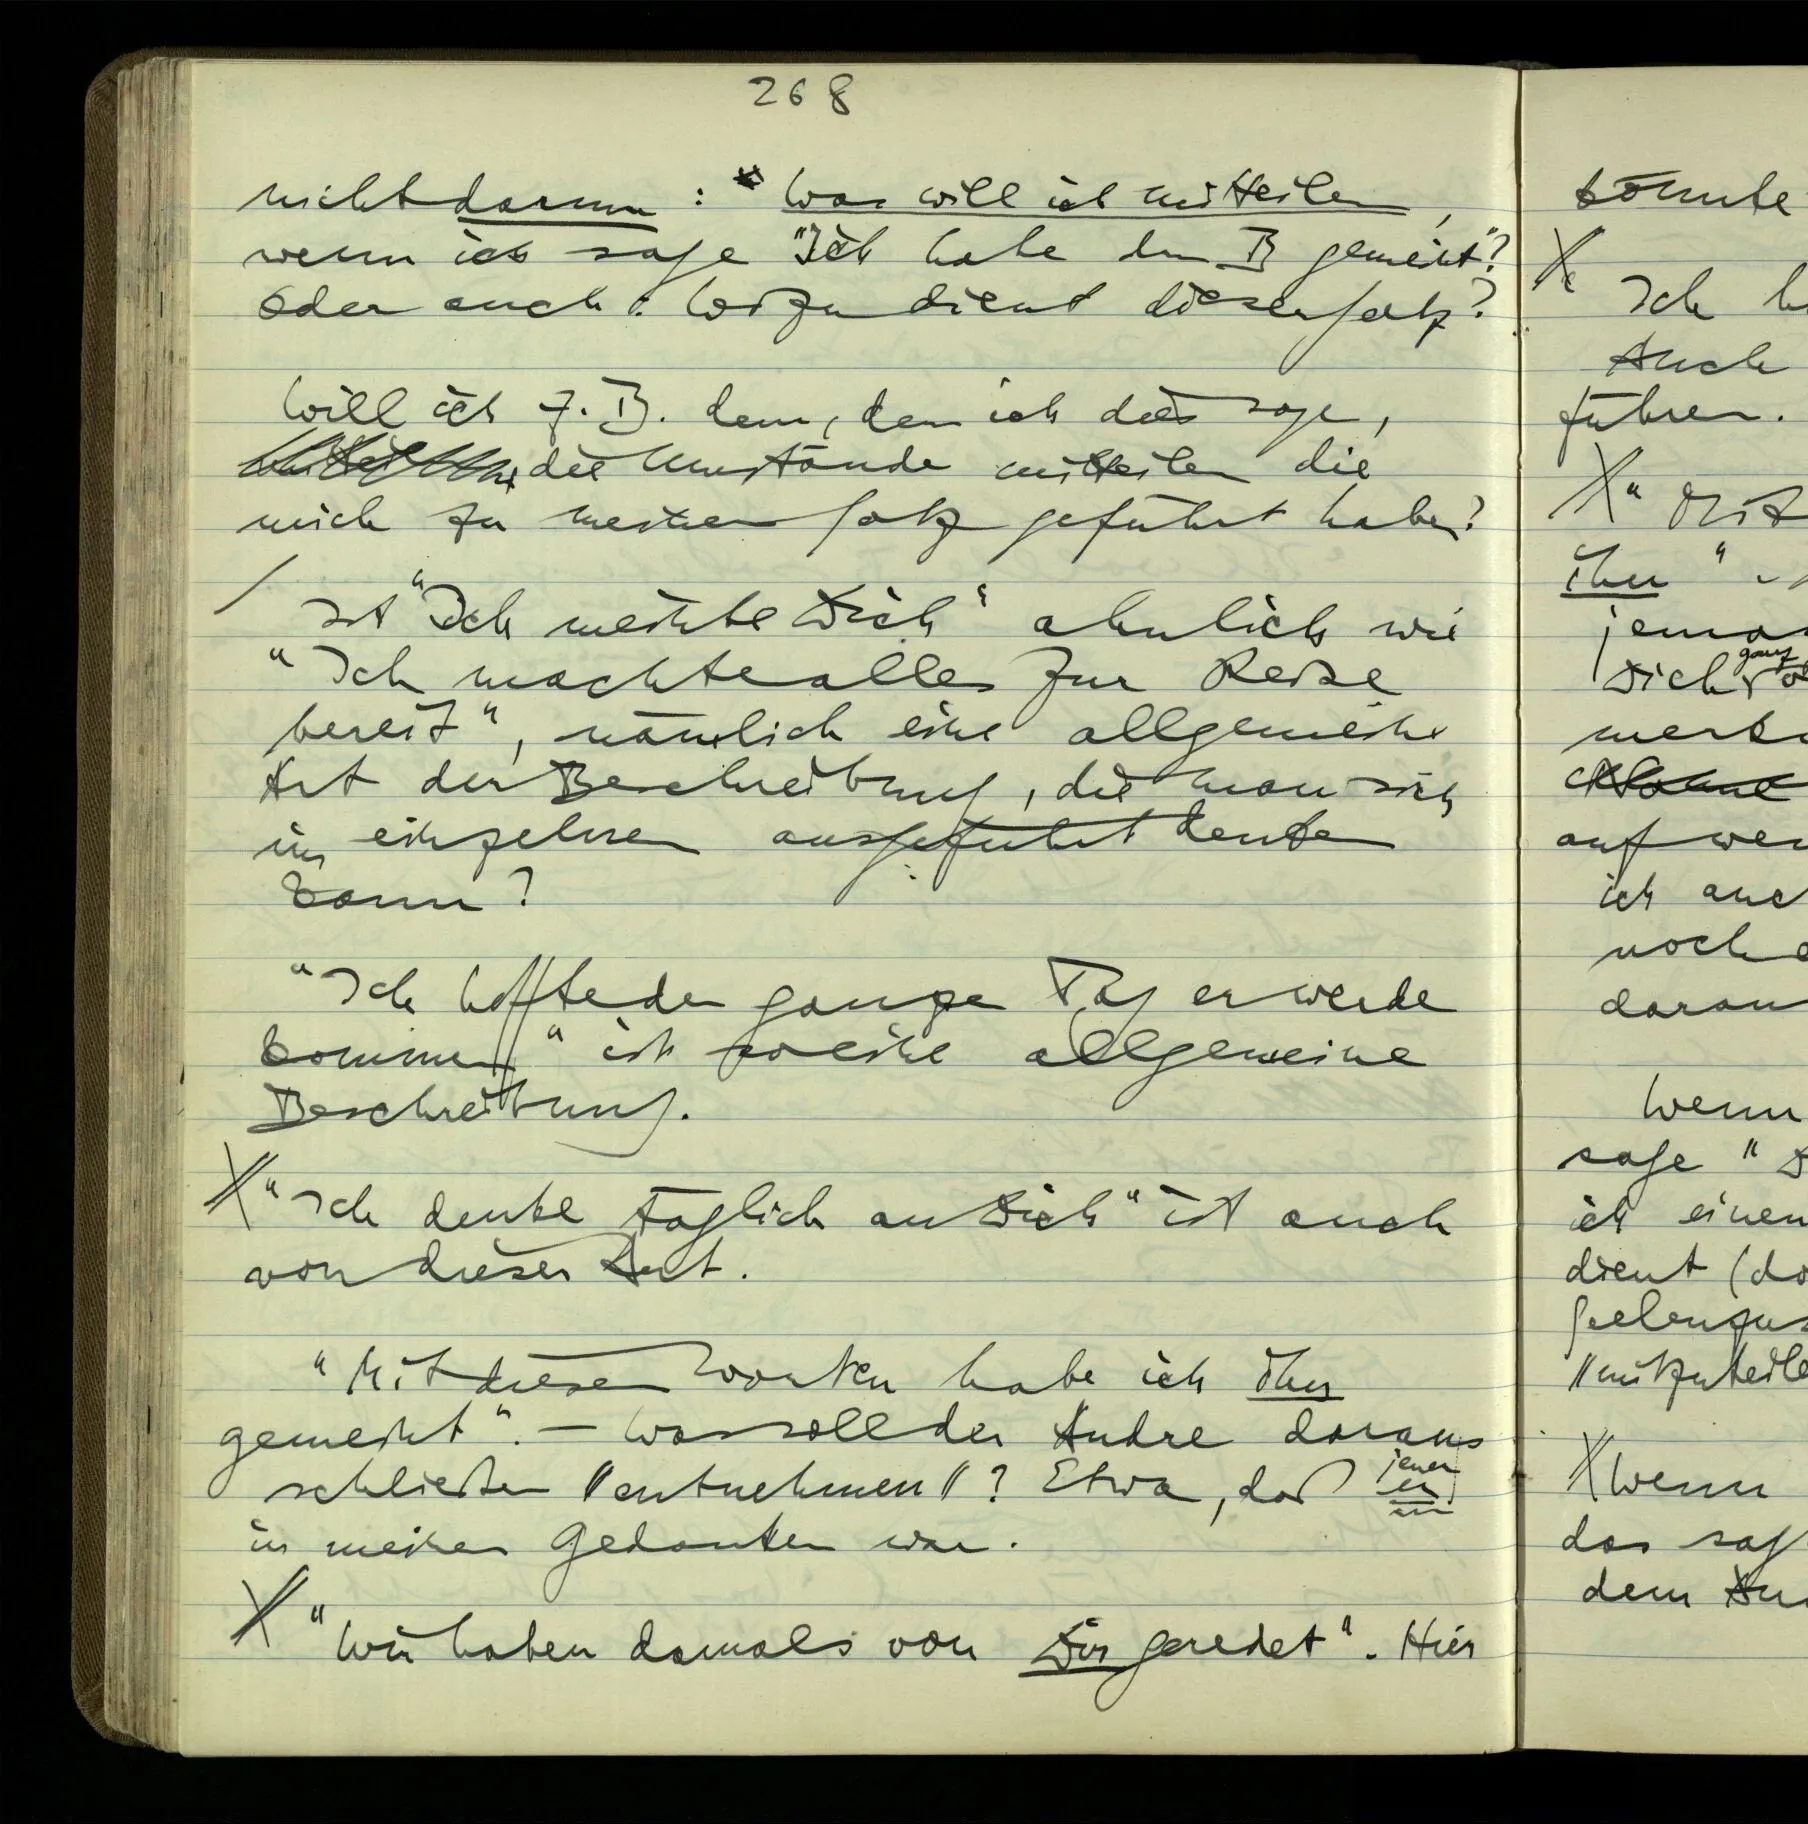 268
nicht darum : " Was will ich mitteilen,
wenn ich sage "Ich habe den B gemeint"?
Oder auch: Wozu dient dieser Satz?
Will ich z. B. dem, dem ich dies sage,
die Umstände mitteilen die
mich zu meinem Satz geführt haben?
/ Ist "Ich meinte Dich" ähnlich wie
"Ich machte alles zur Reise
bereit", nämlich eine allgemeine
Art der Beschreibung, die man sich
im einzelnen ausgeführt denken
kann?
"Ich hoffte den ganzen Tag er werde
kommen" ist so eine allgemeine
Beschreibung.
"Ich denke täglich an Dich" ist auch
von dieser Art.
"Mit diesen Worten habe ich ihn
gemeint". – Was soll der Andre daraus
schließen //entnehmen//? Etwa, daß jener er
in meinen Gedanken war.
"Wir haben damals von Dir geredet". Hier
könnte
Ich
Auch
führen.
"Mit
ihn"
Dich ganz
auf
ich
noch
Wenn
sage "
ich einen
dient
//mitzuteile
Wenn
das
dem